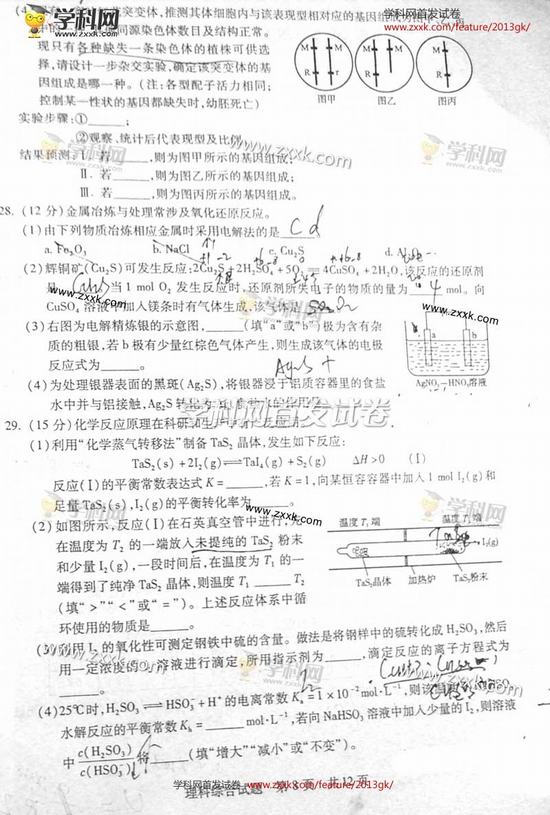 学科网首发试卷
www.zxxk.com/feature/2013gk/
学科网
www.zxxk.com
突变体,推测其体细胞内与该表现型相对应的基因组成
同源染色体数目及结构正常。
现只有各种缺失一条染色体的植株可供选
择,请设计一步杂交实验,确定该突变体的基
因组成是哪一种。(注:各型配子活力相同;
控制某一性状的基因都缺失时,幼胚死亡)
M M R r
M M R
M R r
图甲 图乙 图丙
实验步骤:①______;
②观察、统计后代表现型及比例
结果预测:Ⅰ.若______,则为图甲所示的基因组成;
Ⅱ.若______,则为图乙所示的基因组成;
Ⅲ.若______,则为图丙所示的基因组成。
学科网
www.zxxk.com
28.(12分)金属冶炼与处理常涉及氧化还原反应。
(1)由下列物质冶炼相应金属时采用电解法的是 c d
a. Fe₂O₃ b. NaCl c. Cu₂S d. Al₂O₃
(2)辉铜矿(Cu₂S)可发生反应:2Cu₂S+2H₂SO₄+5O₂══4CuSO₄+2H₂O,该反应的还原剂
是______,当1 mol O₂发生反应时,还原剂所失电子的物质的量为 4 mol。向
CuSO₄溶液中加入镁条时有气体生成,该气体是
(3)右图为电解精炼银的示意图,______(填“a”或“b”)极为含有杂
质的粗银,若b极有少量红棕色气体产生,则生成该气体的电极
反应式为______。
a b
AgNO₃—HNO₃溶液
(4)为处理银器表面的黑斑(Ag₂S),将银器浸于铝质容器里的食盐
水中并与铝接触,Ag₂S转
学科网首发试卷
29.(15分)化学反应原理在科研和
(1)利用“化学蒸气转移法”制备TaS₂晶体,发生如下反应:
TaS₂(s)+2I₂(g)⇌TaI₄(g)+S₂(g) ΔH>0 (Ⅰ)
反应(Ⅰ)的平衡常数表达式K=______,若K=1,向某恒容容器中加入1 mol I₂(g)和
足量TaS₂(s),I₂(g)的平衡转化率为______。
www.zxxk.com
(2)如图所示,反应(Ⅰ)在石英真空管中进行,先
在温度为T₂的一端放入未提纯的TaS₂粉末
和少量I₂(g),一段时间后,在温度为T₁的一
端得到了纯净TaS₂晶体,则温度T₁______T₂
(填“>”“<”或“=”)。上述反应体系中循
环使用的物质是______。
温度T₁端 温度T₂端
I₂(g)
TaS₂晶体 加热炉 TaS₂粉末
学科网
www.zxxk.com
(3)利用I₂的氧化性可测定钢铁中硫的含量。做法是将钢样中的硫转化成H₂SO₃,然后
用一定浓度的I₂溶液进行滴定,所用指示剂为______,滴定反应的离子方程式为
______。
(4)25℃时,H₂SO₃⇌HSO₃⁻+H⁺的电离常数Kₐ=1×10⁻²mol·L⁻¹,则该温度下NaHSO₃
水解反应的平衡常数Kₕ=______mol·L⁻¹,若向NaHSO₃溶液中加入少量的I₂,则溶液
中c(H₂SO₃)/c(HSO₃⁻)将______(填“增大”“减小”或“不变”)。
学科网首发试卷
www.zxxk.com/feature/2013gk/
理科综合试题 第8页 共12页